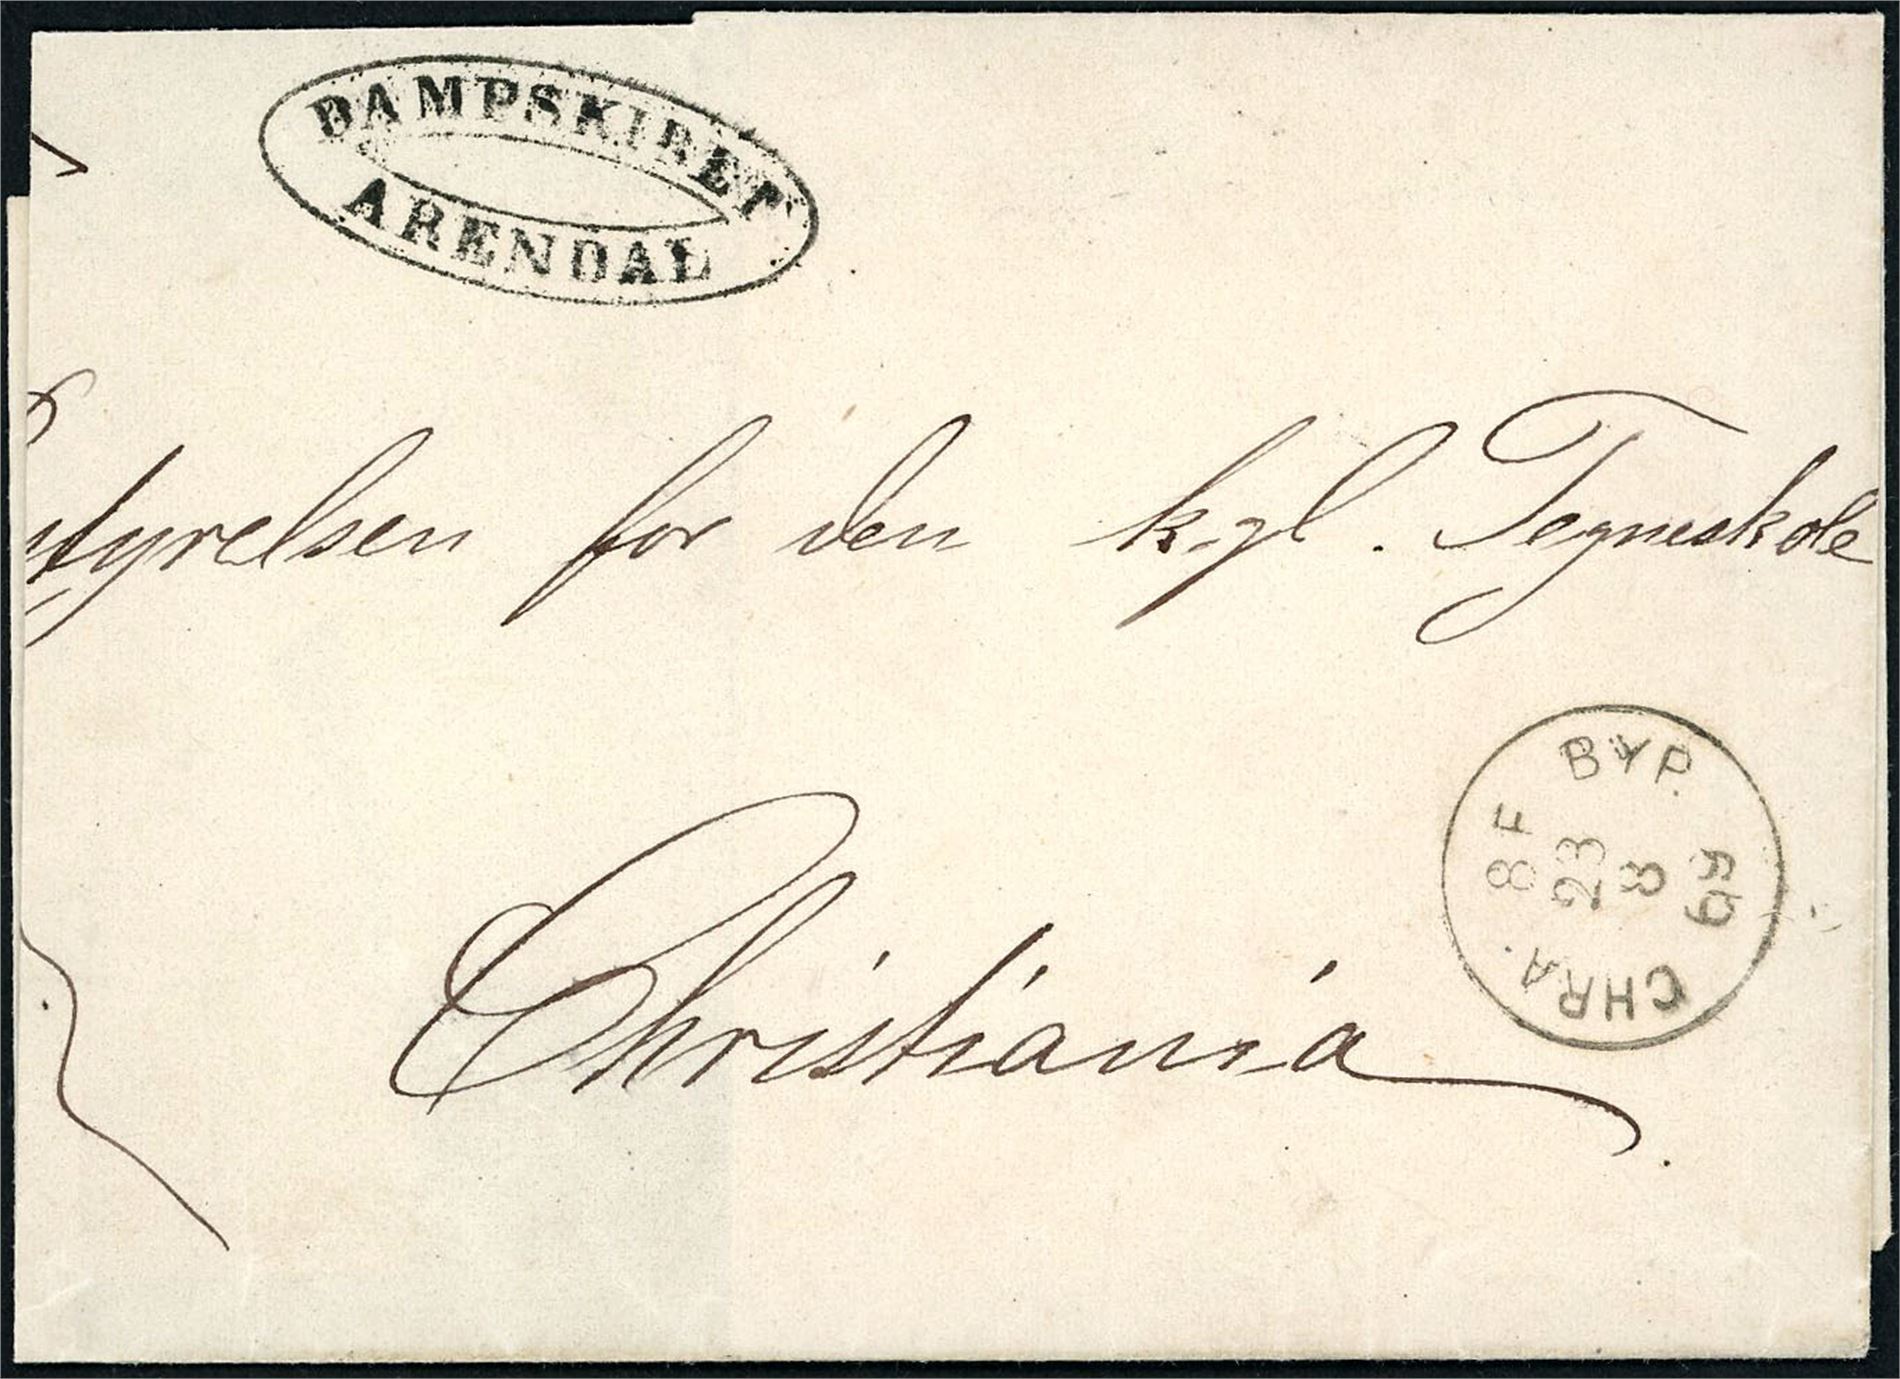 DAMPSKIBET
ARENDAL
styrelsen for den kgl. Tegneskole
Christiania
CHRA. BYP.
8 F
23
8